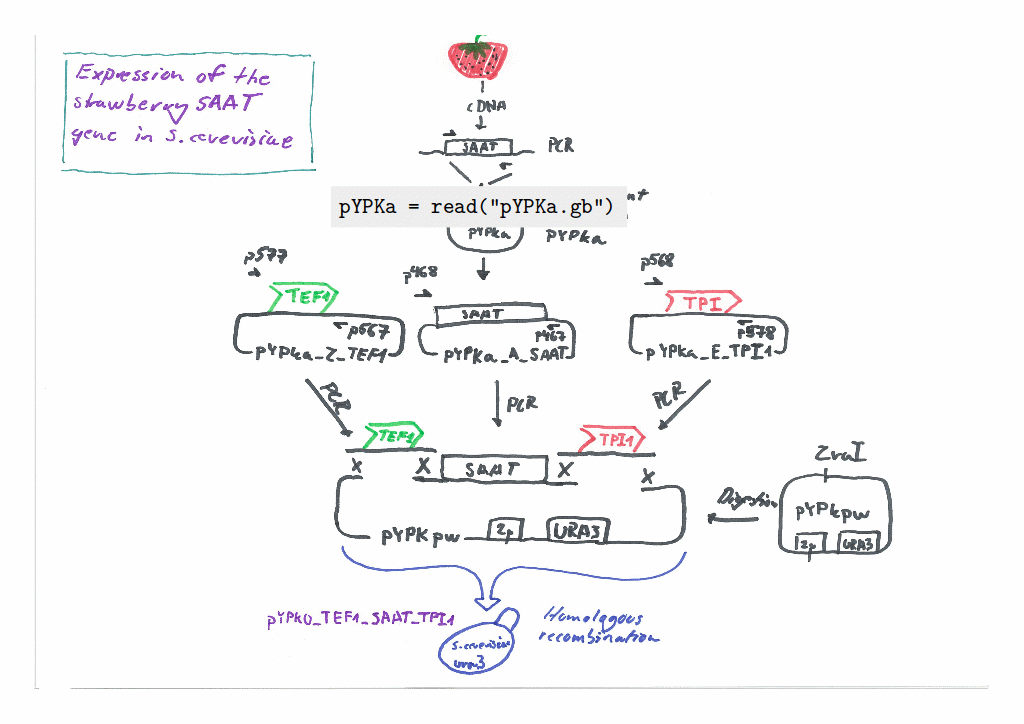 Expression of the
strawberry SAAT
gene in S. cerevisiae
cDNA
SAAT
PCR
pYPKa = read("pYPKa.gb")
pYPKa
pYPKa
p577
TEF1
p567
pYPKa_Z_TEF1
p468
SAAT
p467
pYPKa_A_SAAT
p568
TPI
p578
pYPKa_E_TPI1
PCR
PCR
PCR
TEF1
TPI1
X
X
SAAT
X
X
ZraI
Digestion
pYPKpw
2µ
URA3
pYPKpw
2µ
URA3
pYPK0_TEF1_SAAT_TPI1
Homologous
recombination
S. cerevisiae
ura3